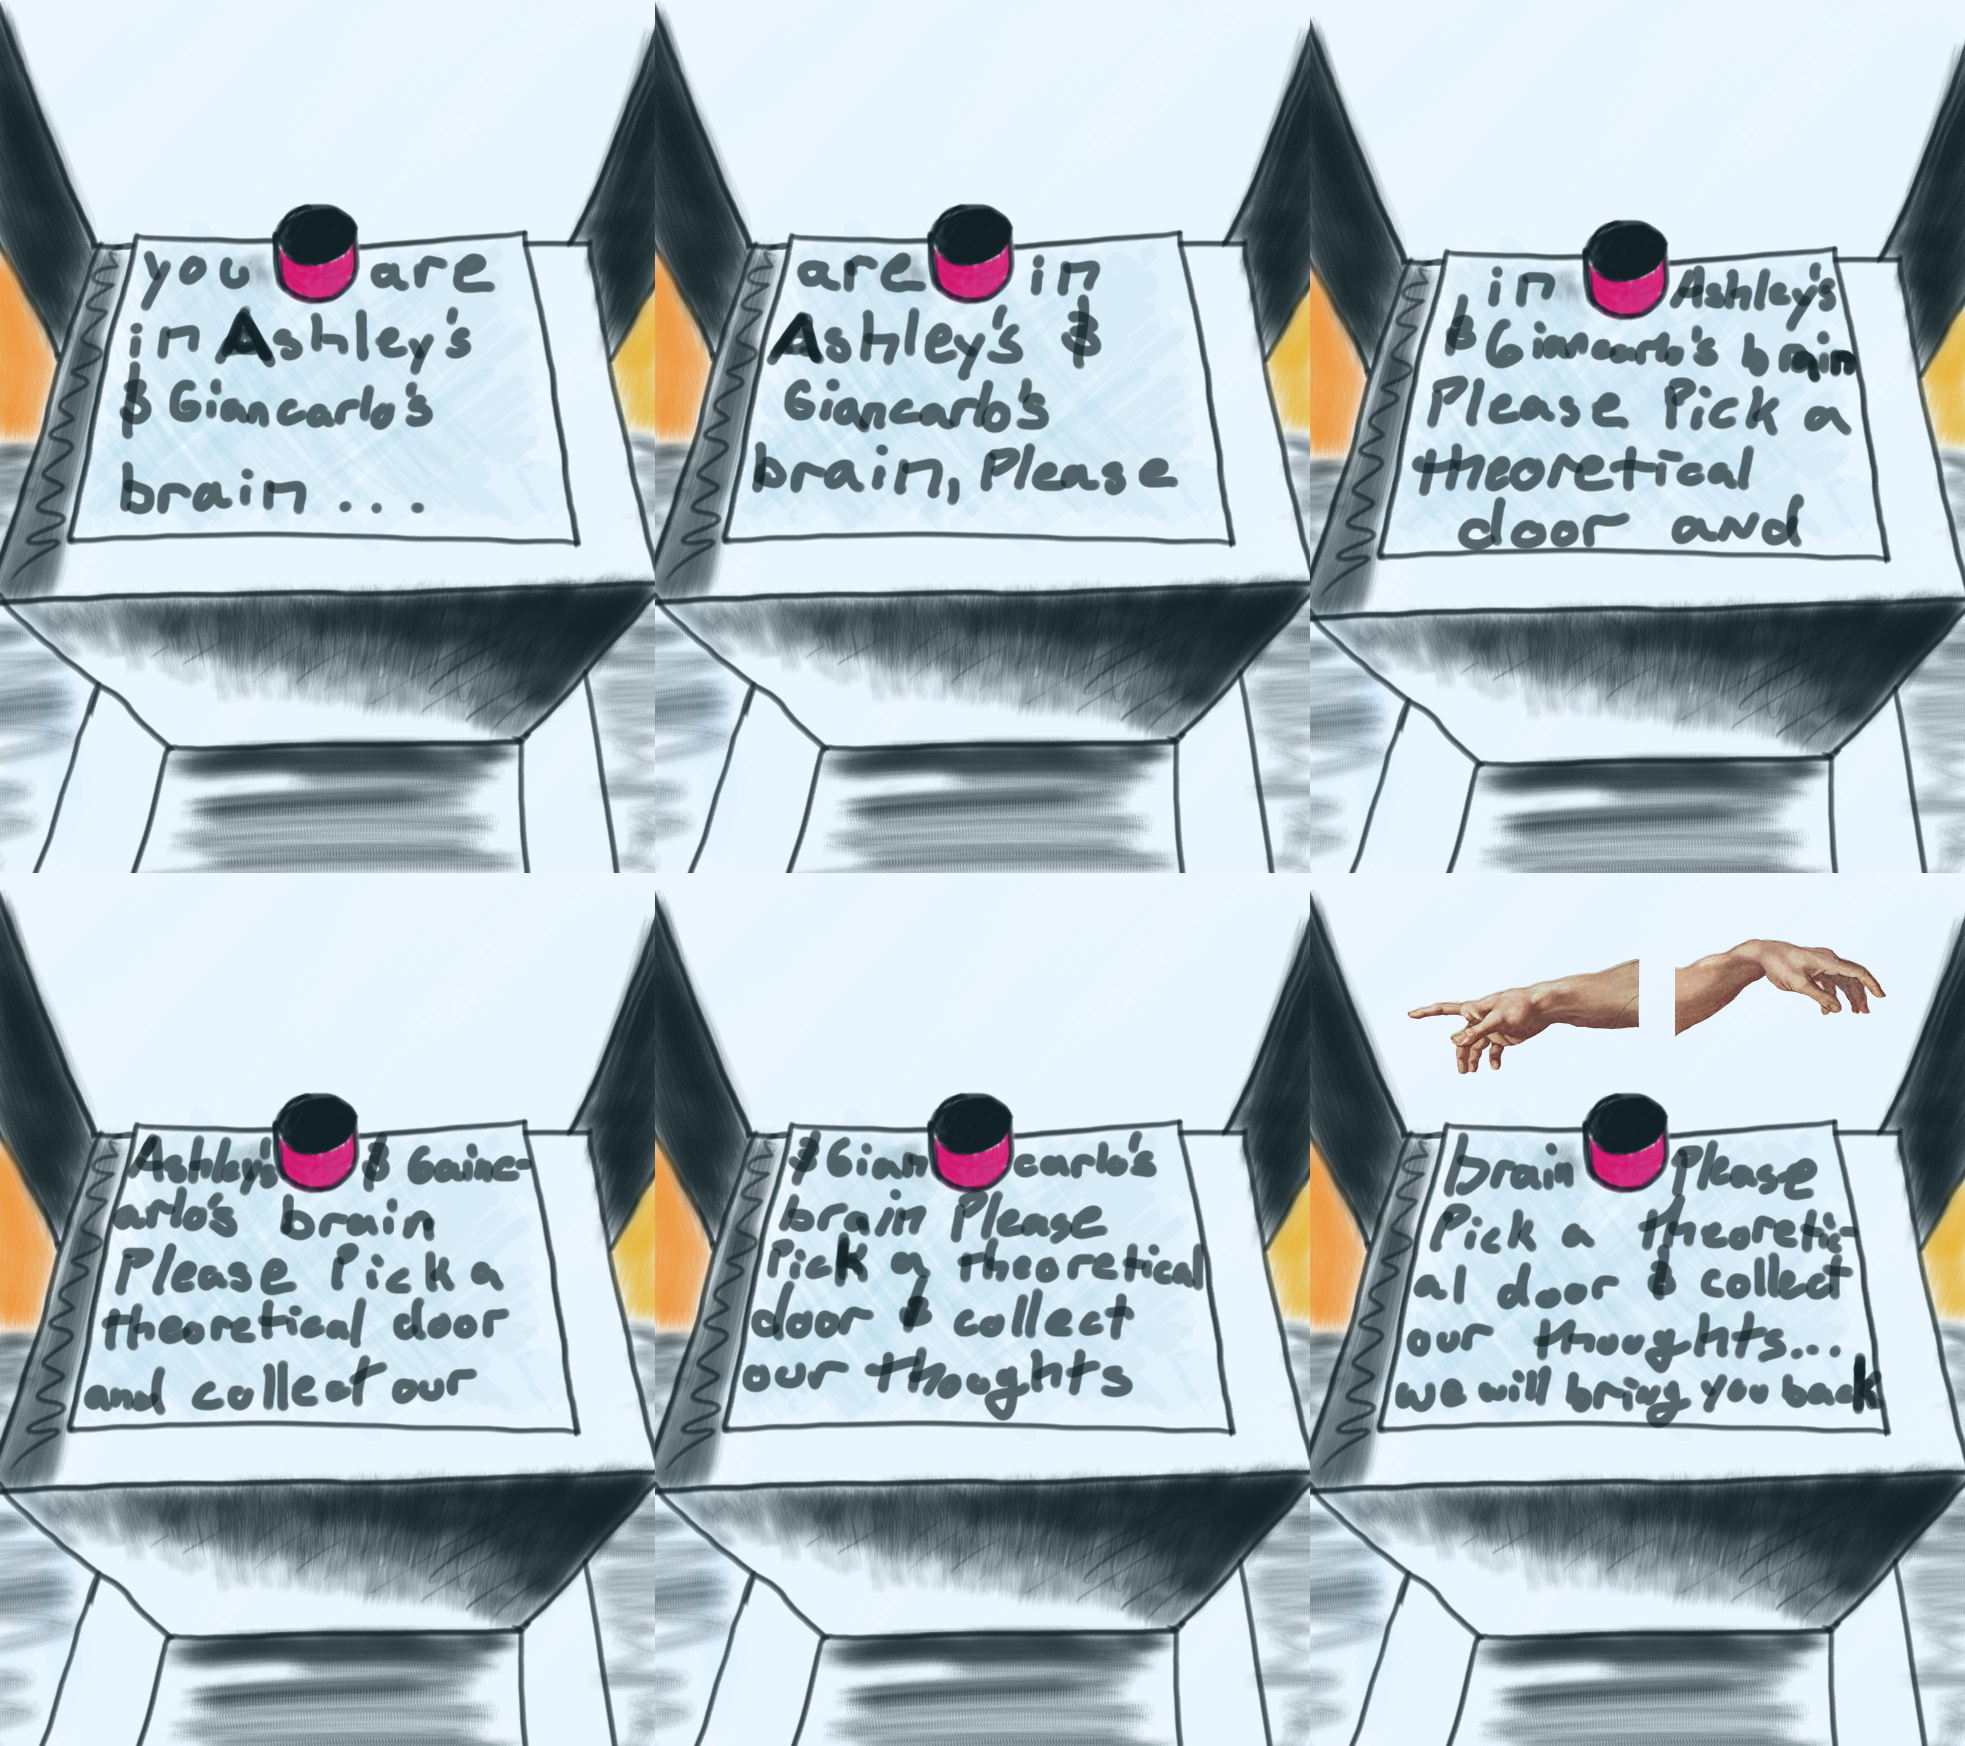 you are
in Ashley's
& Giancarlo's
brain...
are in
Ashley's &
Giancarlo's
brain, Please
in Ashley's
& Giancarlo's brain
Please Pick a
theoretical
door and
Ashley's & Gainc-
arlo's brain
Please Pick a
theoretical door
and collect our
& Giancarlo's
brain Please
Pick a theoretical
door & collect
our thoughts
brain Please
Pick a theoretic-
al door & collect
our thoughts...
we will bring you back